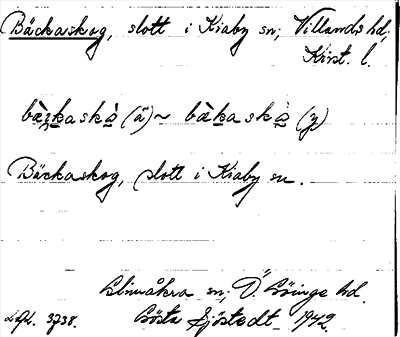 Bäckaskog, slott i Kiaby sn; Villands hd;
Krist. l.
Bäckaskog, slott i Kiaby sn.
Glimåkra sn; Ö. Göinge hd.
3738. Gösta Sjöstedt 1942.